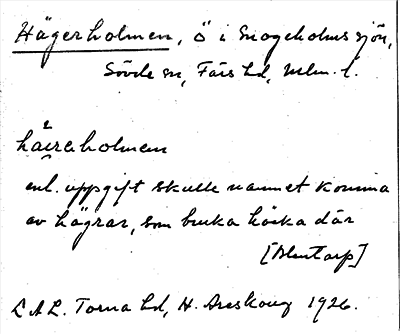 Hägerholmen, ö i Snogeholmssjön,
Sövde sn, Färs hd, Mlm. l.
håiraholmen
enl. uppgift skulle namnet komma
av hägrar, som bruka häcka där
[Blentarp]
L A L. Torna hd, H. Areskoug 1926.